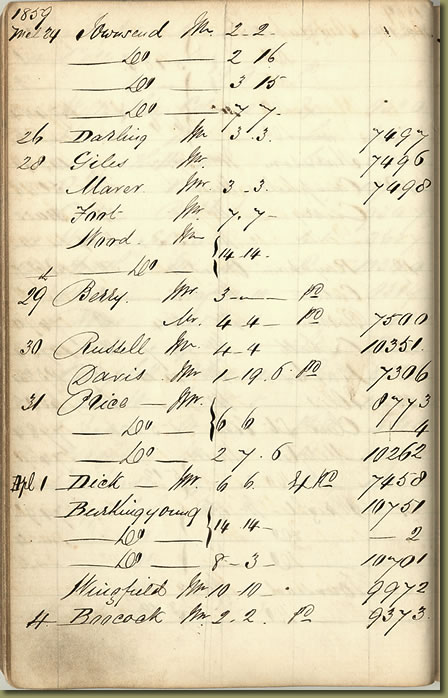 1859
Mch 24 Townsend Mr 2-2-
— Do — 2 16
— Do — 3 15
— Do — 7 7-
26 Darling Mr 3-3- 7497
28 Giles Mr 7496
Maver Mr 3-3- 7498
Fort Mr 7-7-
Word Mr
— Do — 14-14-
29 Berry Mr 3-—- Pd
Mr 4 4- Pd 7500
30 Russell Mr 4-4 10351
Davis Mr 1-19.6 Pd 7306
31 Price — Mr 8773
— Do — 6 6 4
— Do 2 7.6 10262
Apl 1 Dick — Mr 6 6 Pd 7458
Burkingyoung 10751
— Do — 14 14- — 2
— Do 8-3- 10701
Wingfield Mr 10-10 9972
4 Brocock Mr 2-2- Pd 9373